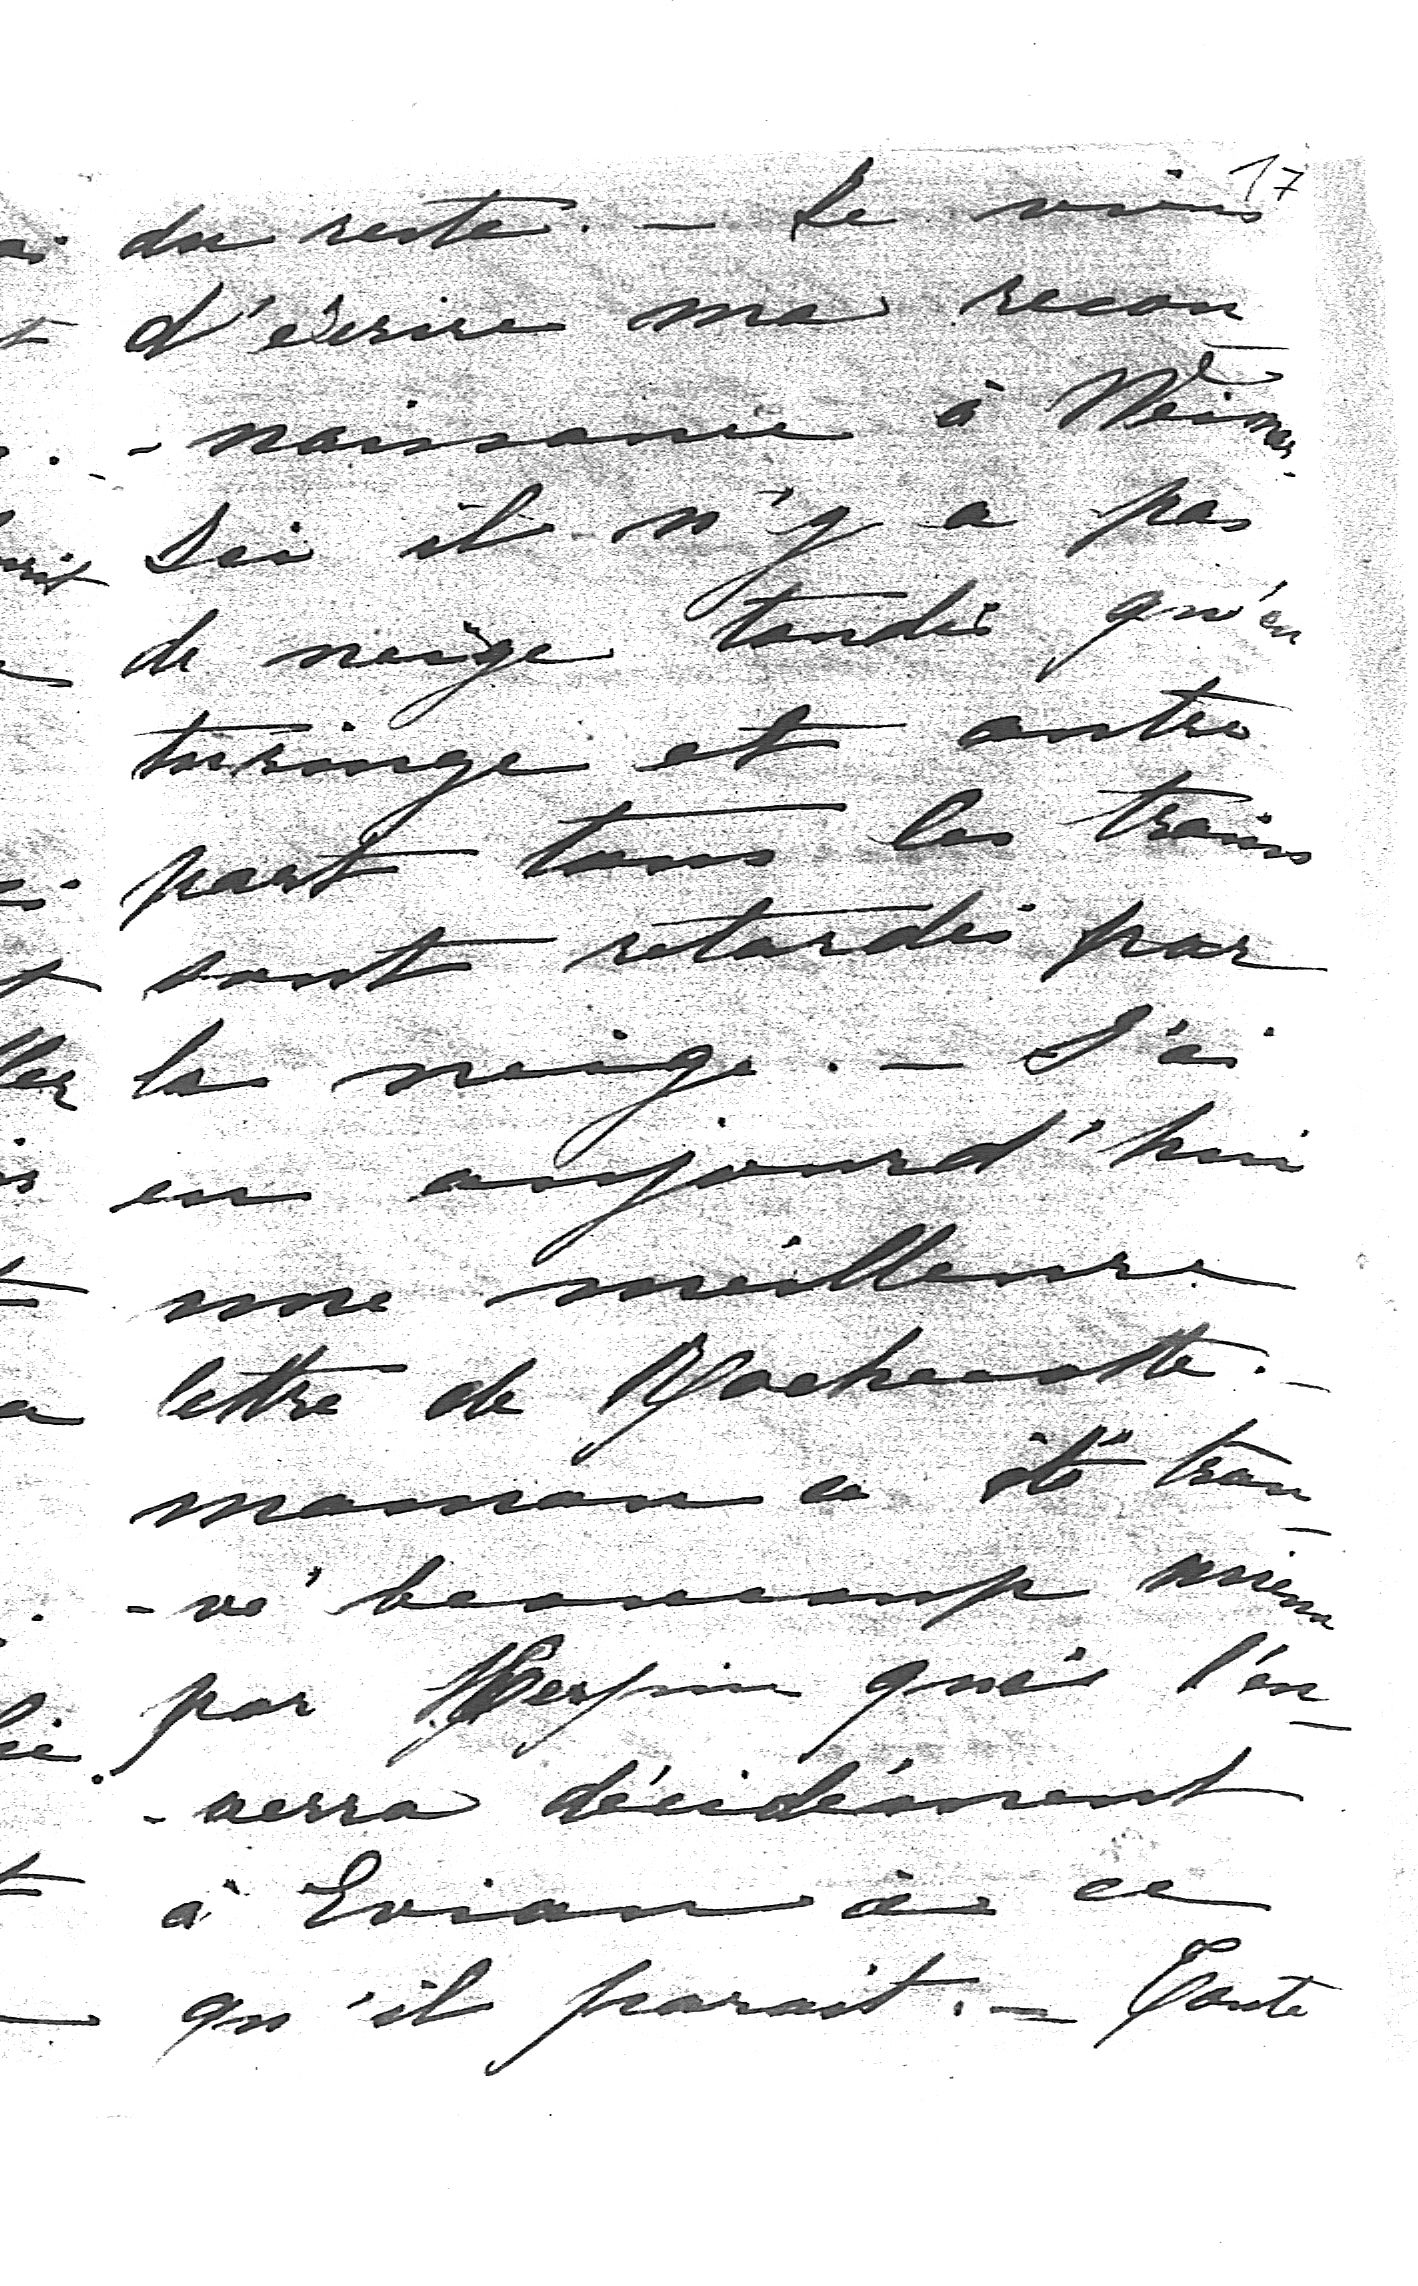 17
du reste. – Je viens
d'écrire ma recon
-naissance à Weimar.
Ici il n'y a pas
de neige tandis qu'en
turinge et autre
part tous les trains
sont retardés par
la neige. – J'ai
eu aujourd'hui
une meilleure
lettre de Rochecotte. –
maman a été trou
-vé beaucoup mieux
par Herpin qui l'en
-verra décidément
à Evian à ce
qu'il parait. – Toute